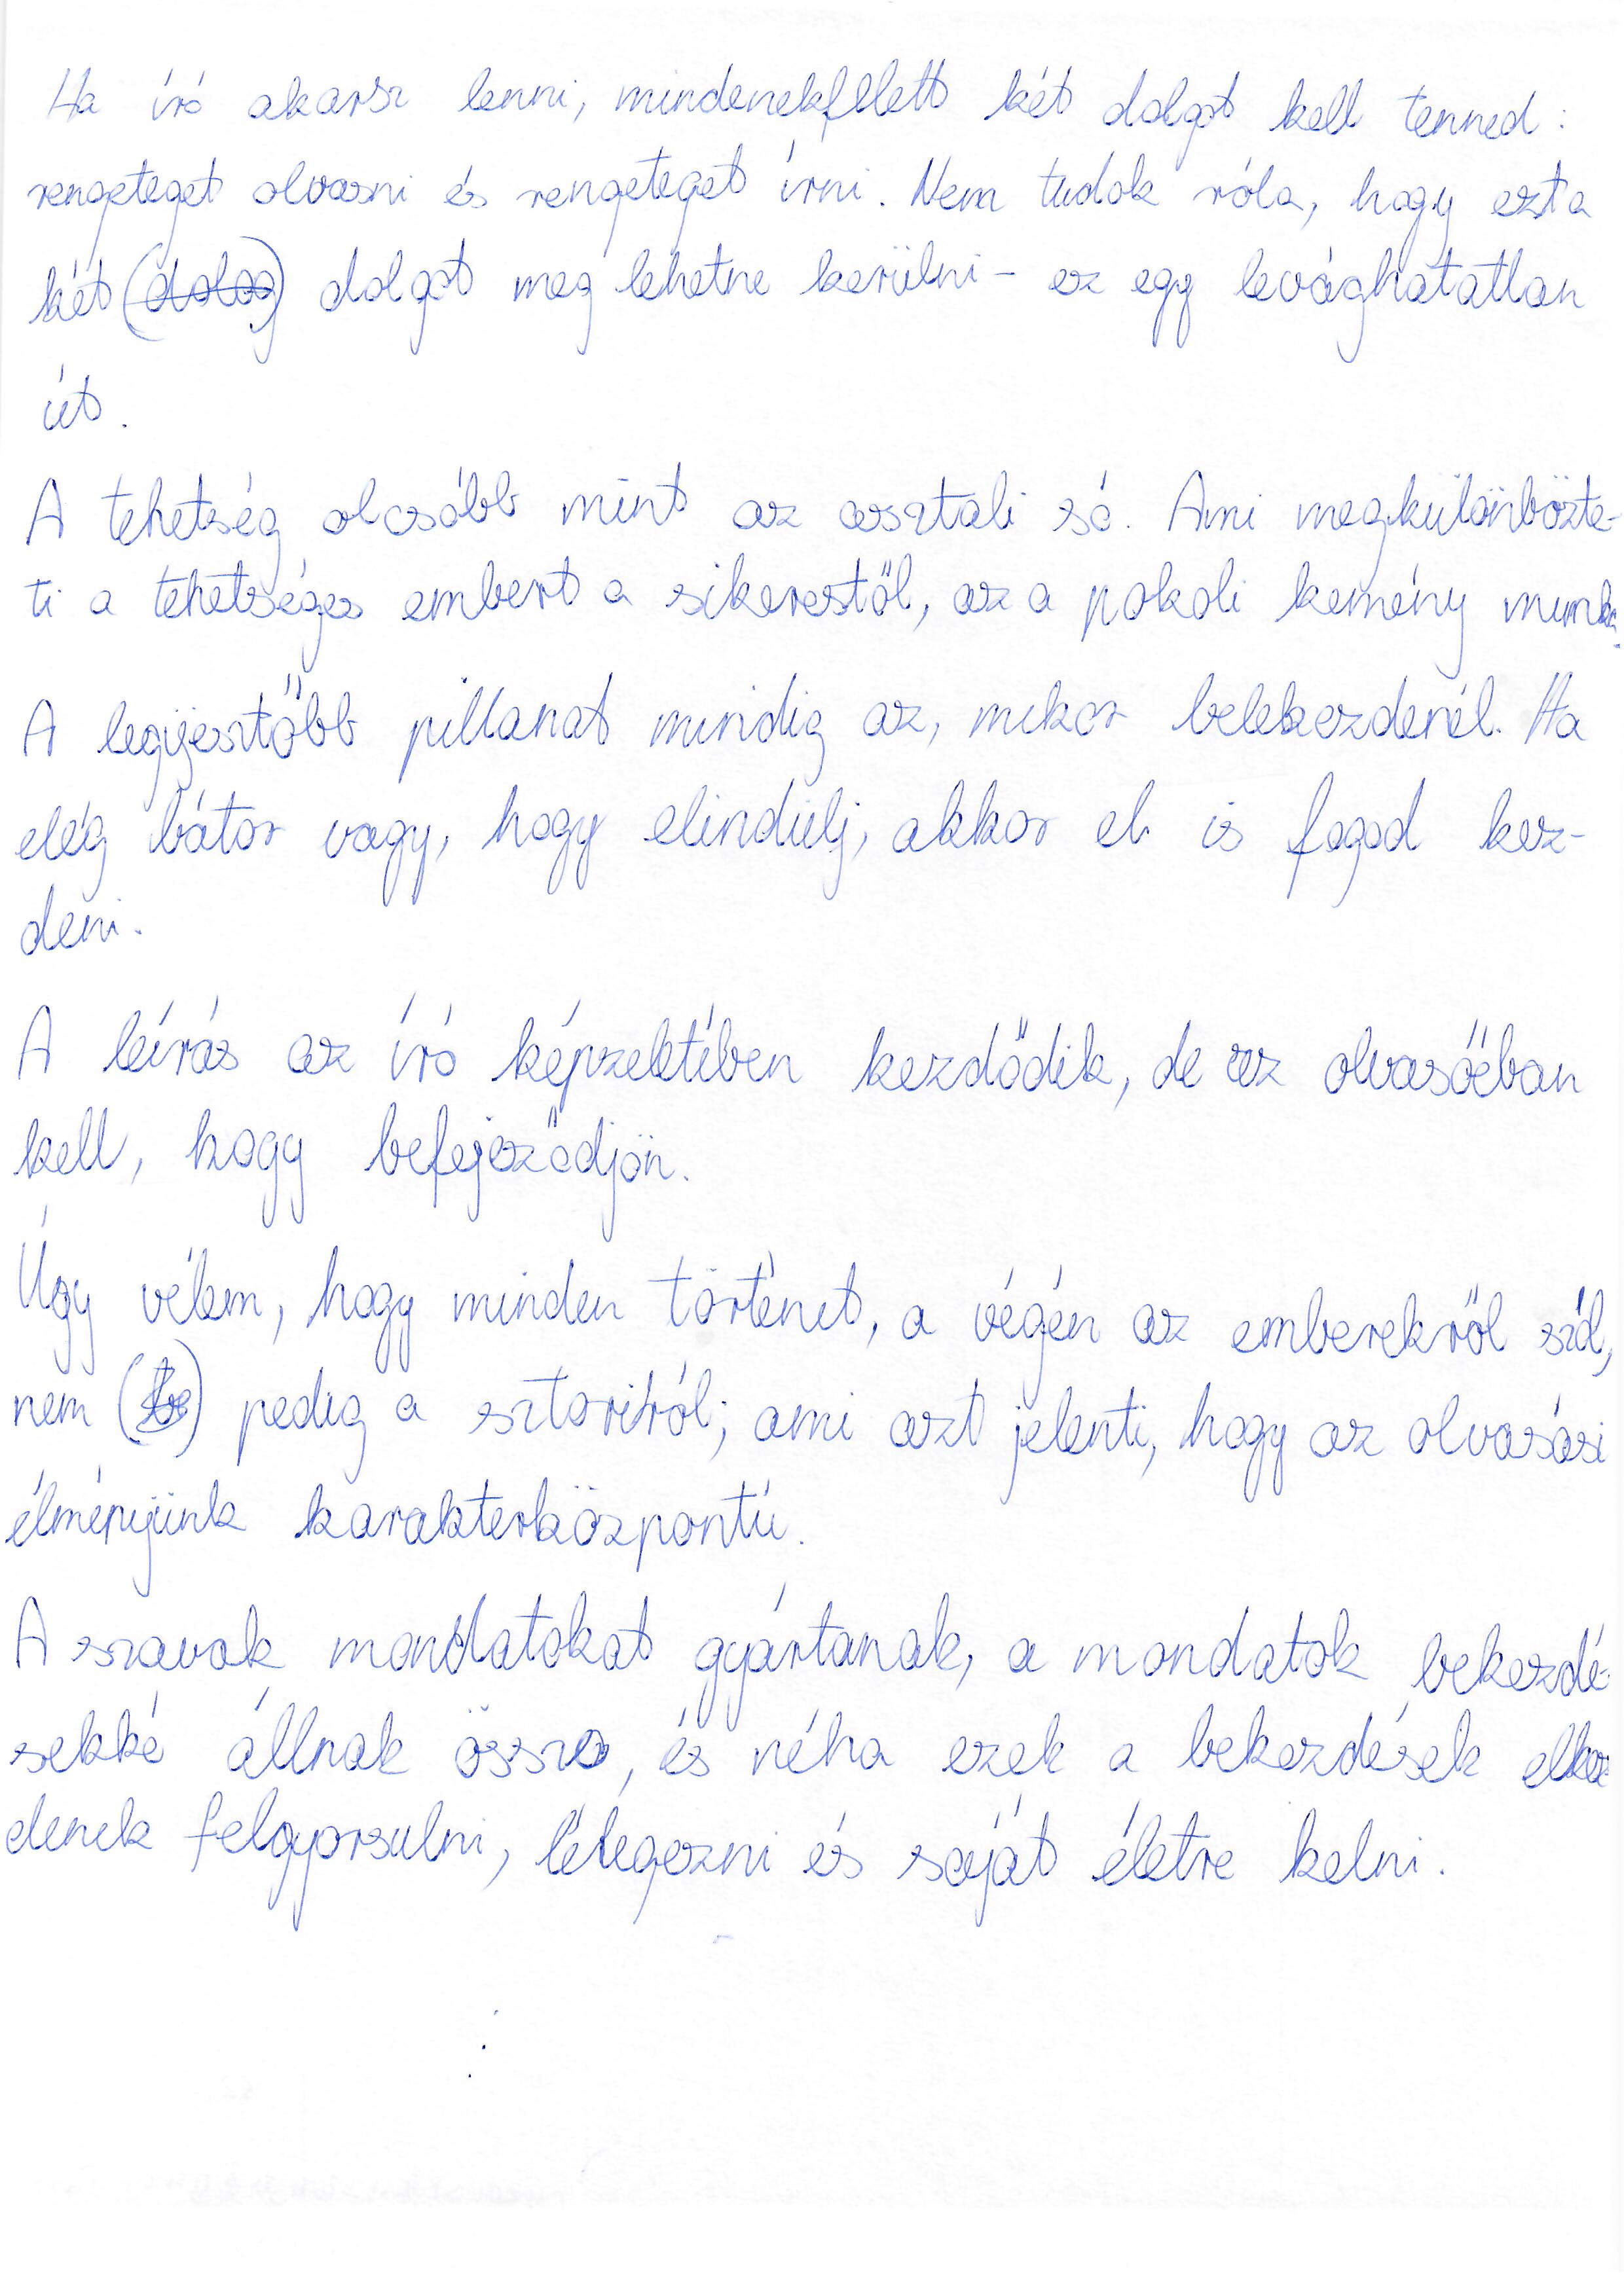 Ha író akarsz lenni, mindenekfelett két dolgot kell tenned:
rengeteget olvasni és rengeteget írni. Nem tudok róla, hogy ezt a
két (dolog) dolgot meg lehetne kerülni - ez egy levághatatlan
út.
A tehetség olcsóbb mint az asztali só. Ami megkülönbözte-
ti a tehetséges embert a sikerestől, az a pokoli kemény munka.
A legijesztőbb pillanat mindig az, mikor belekezdenél. Ha
elég bátor vagy, hogy elindulj, akkor el is fogod kez-
deni.
A leírás az író képzeletében kezdődik, de az olvasóéban
kell, hogy befejeződjön.
Úgy vélem, hogy minden történet, a végén az emberekről szól,
nem pedig a sztoriról; ami azt jelenti, hogy az olvasási
élményünk karakterközpontú.
A szavak mondatokat gyártanak, a mondatok bekezdé-
sekké állnak össze, és néha ezek a bekezdések elkez
denek felgyorsulni, lélegezni és saját életre kelni.